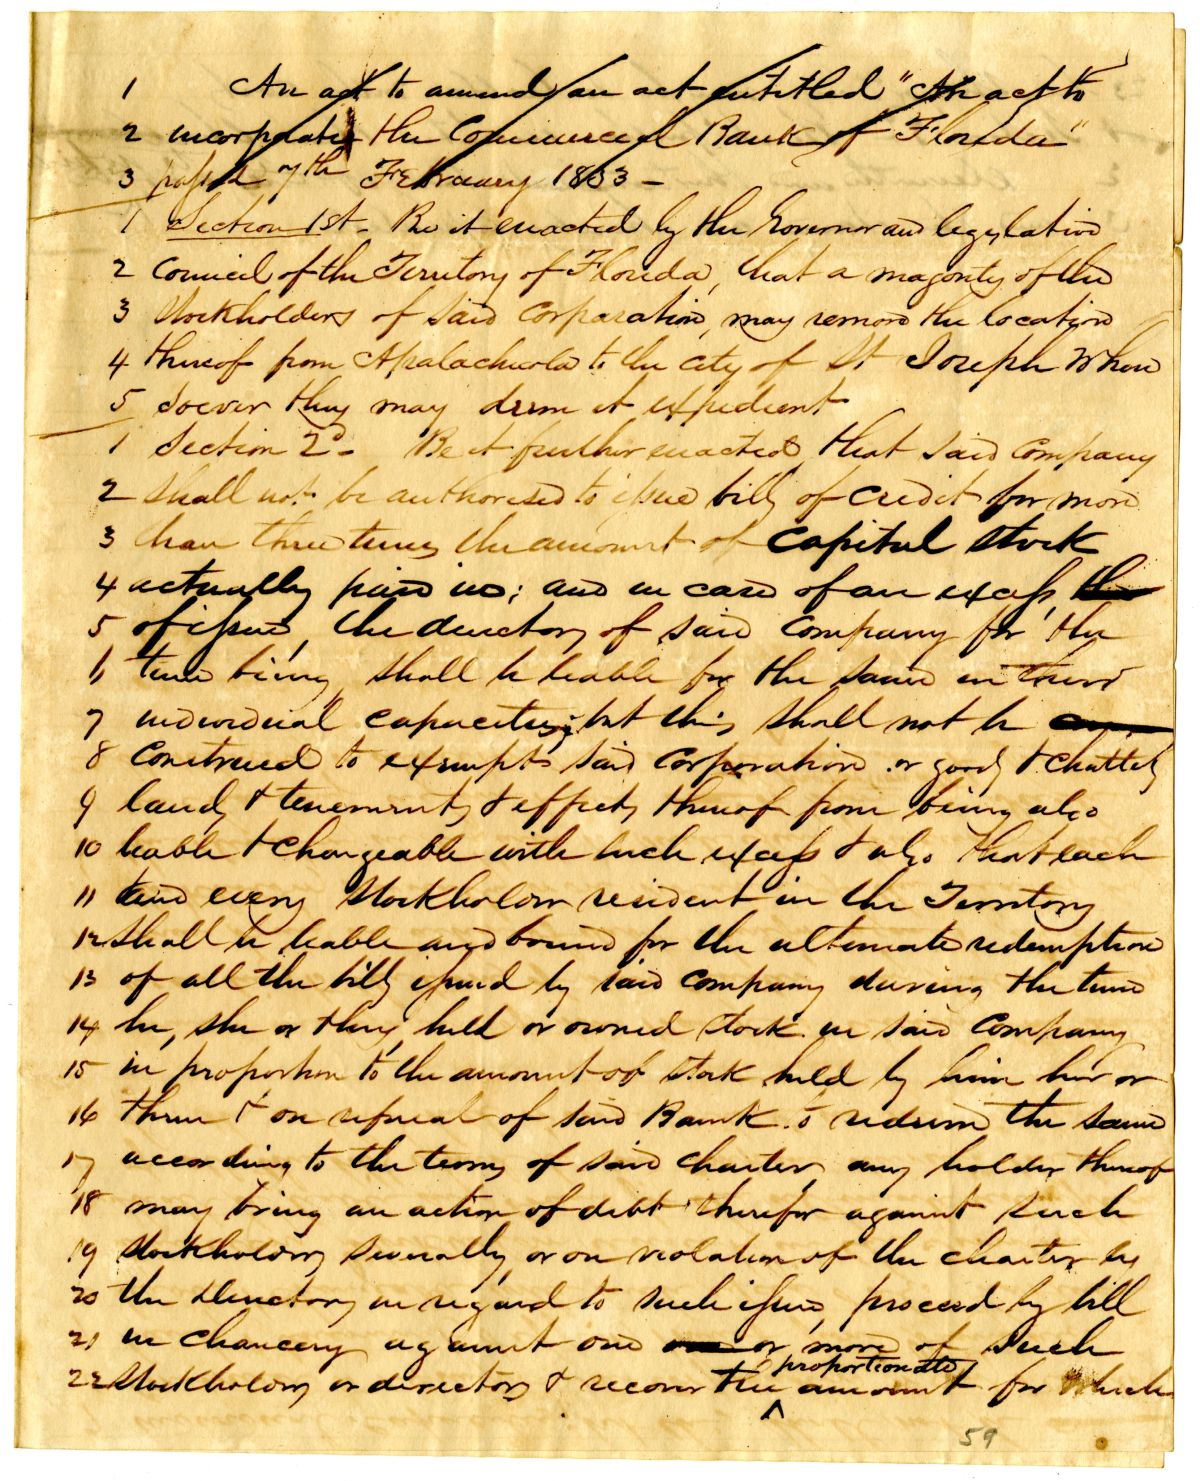 1 An act to amend an act entitled "An act to
2 incorporate the Commercial Bank of Florida"
3 passed 7th February 1833 –
1 Section 1st – Be it enacted by the Governor and legislative
2 Council of the Territory of Florida, that a majority of the
3 Stockholders of said Corporation, may remove the location
4 thereof from Apalachicola to the City of St Joseph When
5 soever they may deem it expedient
1 Section 2d – Be it further enacted, that said Company
2 shall not be authorised to issue bills of credit for more
3 than three times the amount of Capital Stock
4 actually paid in; and in case of an excess,
5 of issue, the directors of said Company for the
6 time being, shall be leable for the same in their
7 individual capacities; but this shall not be
8 Construed to exempt said Corporation or goods & Chattels
9 lands & tenements & effects thereof from being also
10 leable & chargeable with such excess & also that each
11 and every Stockholder resident in the Territory
12 shall be leable and bound for the ultimate redemption
13 of all the bills issued by said Company during the time
14 he, she or they, held or owned stock in said Company
15 in proportion to the amount of Stock held by him her or
16 them & on refusal of said Bank to redeem the same
17 according to the terms of said charter, any holder thereof
18 may bring an action of debt therefor against such
19 Stockholders severally, or on violation of the charter by
20 the Directors, in regard to such issue, proceed by bill
21 in Chancery against one or more of such
proportionate
22 Stockholders or directors & recover the amount for which
59